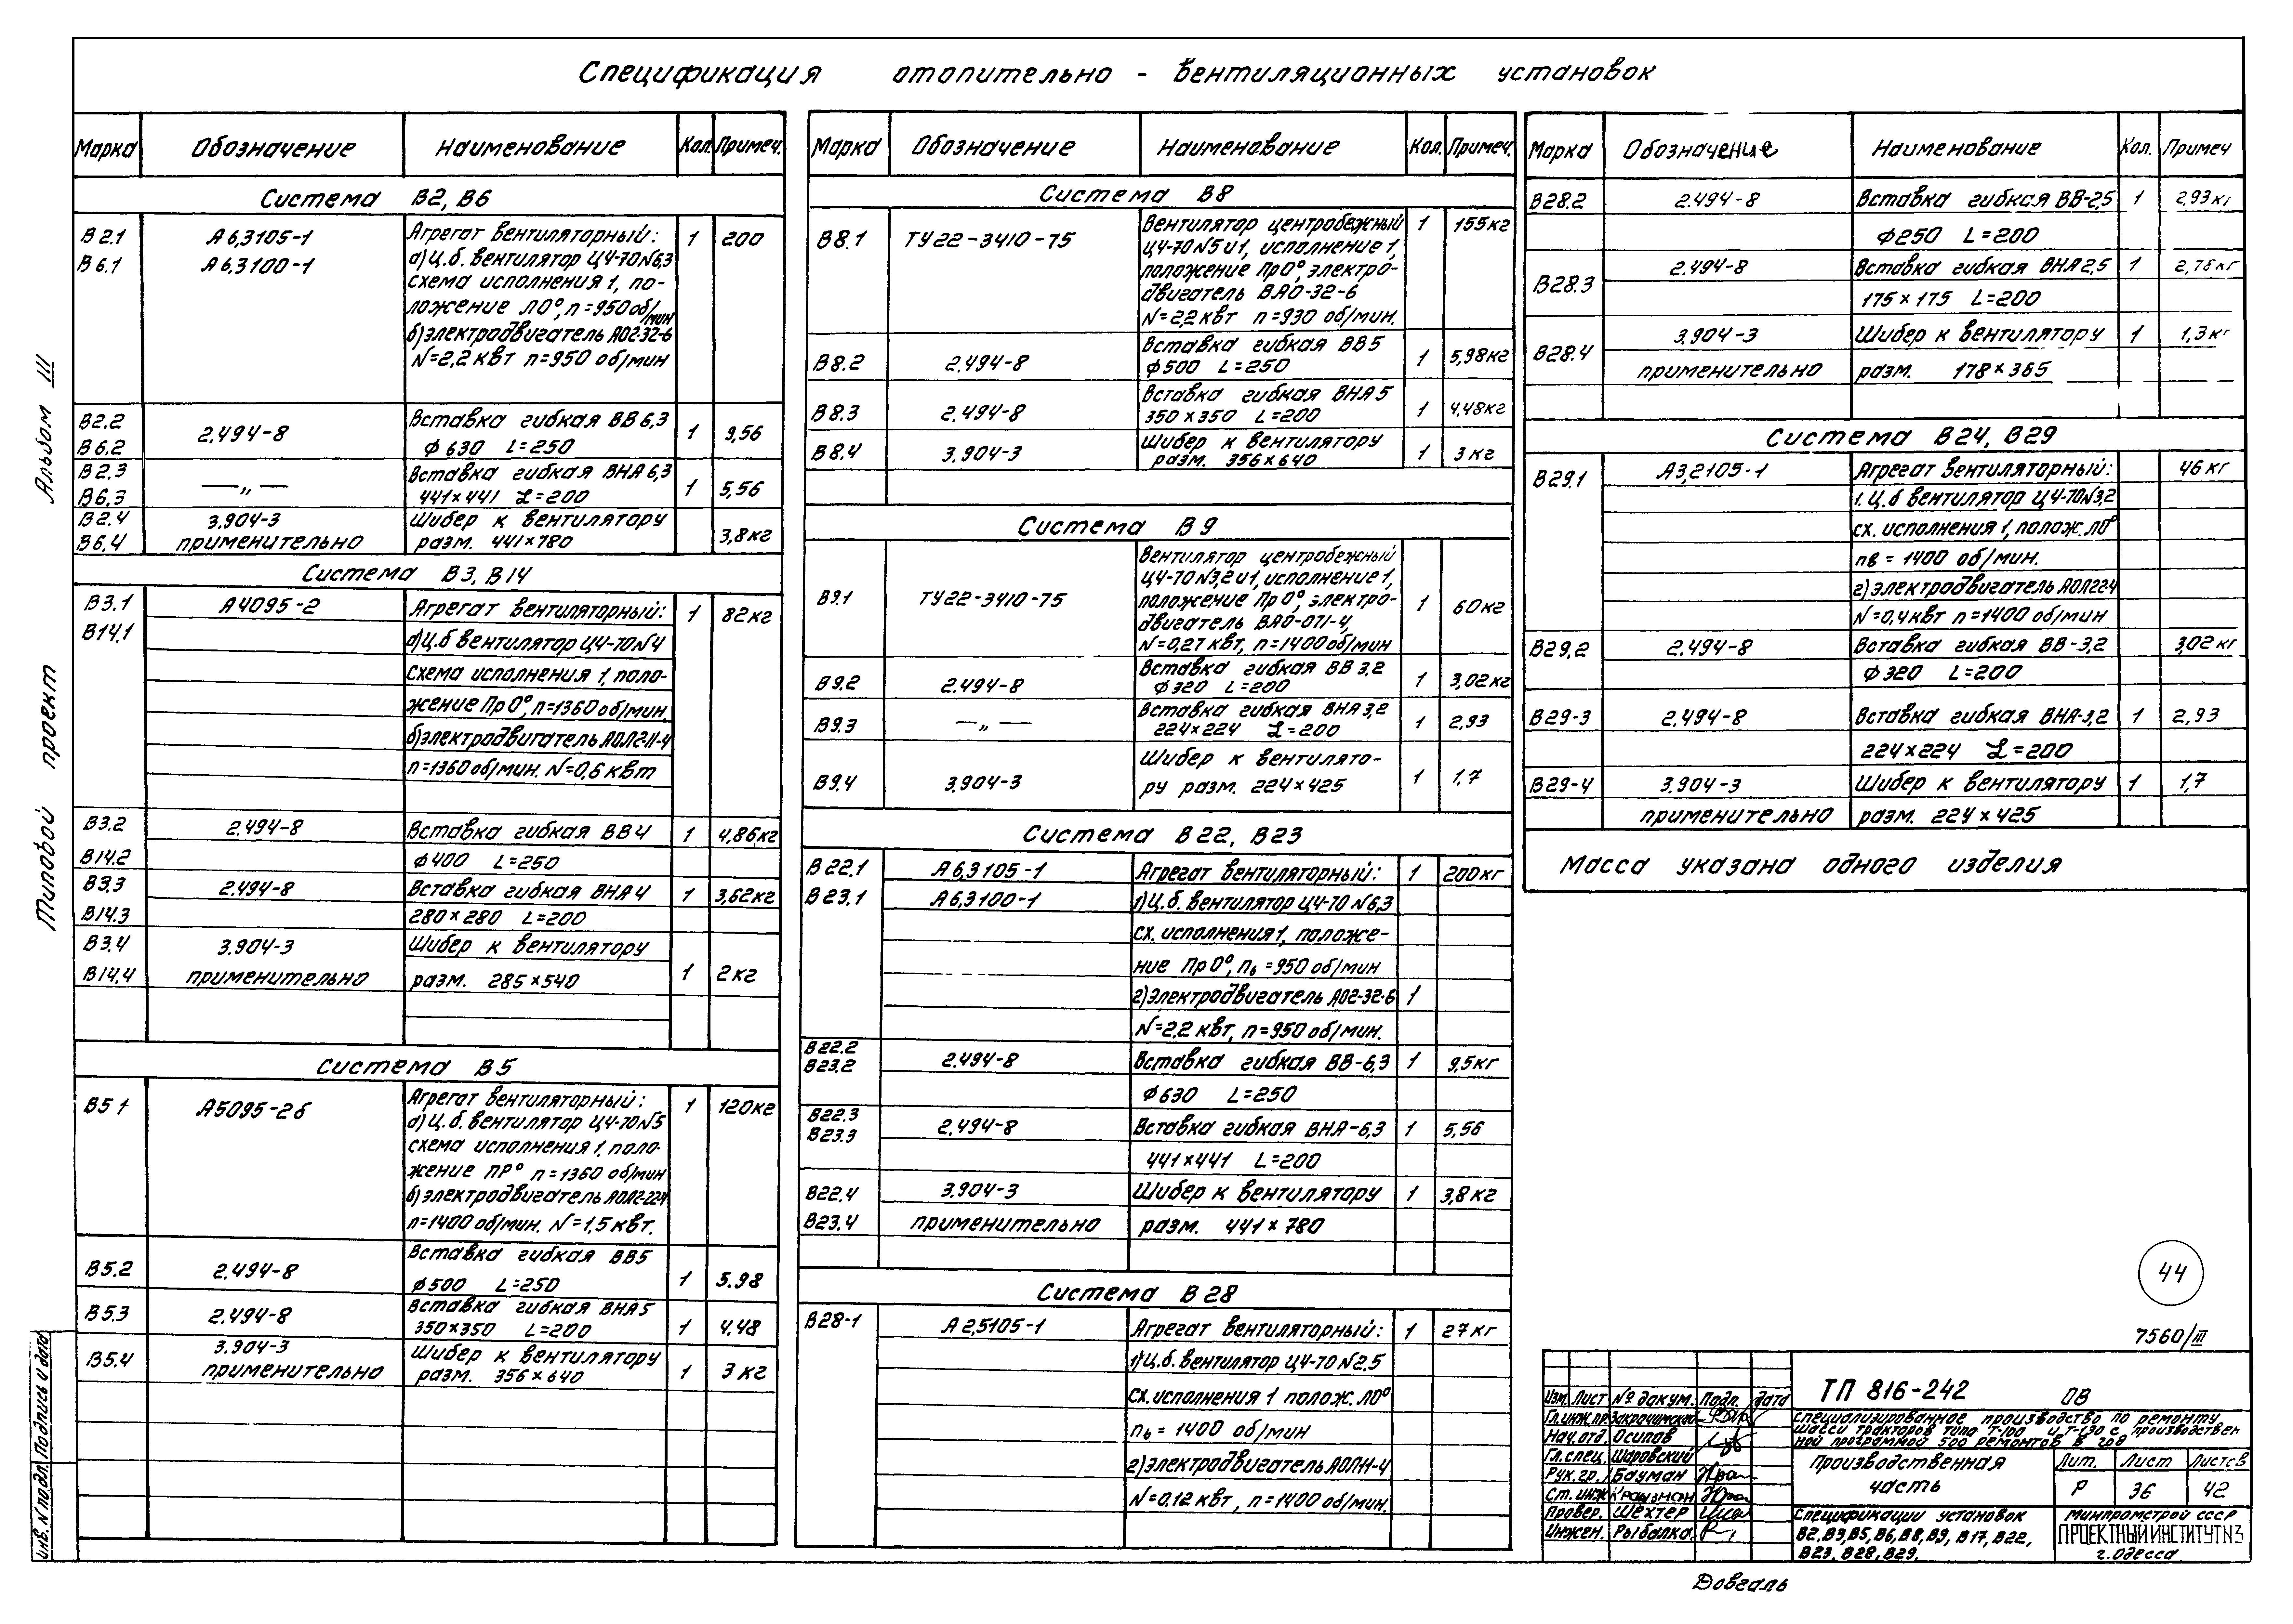 Спецификация отопительно - вентиляционных установок
Марка Обозначение Наименование Кол. Примеч.
Система В2, В6
В2.1 А6,3105-1 Агрегат вентиляторный: 1 200
В6.1 А6,3100-1 а) Ц.б. вентилятор Ц4-70№6,3
схема исполнения 1, по-
ложение Л0°, n=950 об/мин
б) электродвигатель АО2-32-6
N=2,2 квт n=950 об/мин
В2.2 Вставка гибкая ВВ 6,3
В6.2 2.494-8 ф 630 L=250 1 9,56
В2.3 Вставка гибкая ВНА 6,3
В6.3 —„— 441×441 L=200 1 5,56
В2.4 3.904-3 Шибер к вентилятору
В6.4 применительно разм. 441×780 3,8кг
Система В3, В14
В3.1 А4095-2 Агрегат вентиляторный: 1 82кг
В14.1 а) Ц.б вентилятор Ц4-70№4
схема исполнения 1, поло-
жение Пр0°, n=1360 об/мин.
б) электродвигатель АОЛ2-11-4
n=1360 об/мин. N=0,6 квт
В3.2 2.494-8 Вставка гибкая ВВ4 1 4,86кг
В14.2 ф400 L=250
В3.3 2.494-8 Вставка гибкая ВНА 4 1 3,62кг
В14.3 280×280 L=200
В3.4 3.904-3 Шибер к вентилятору
В14.4 применительно разм. 285×540 1 2кг
Система В5
В5.1 А5095-2б Агрегат вентиляторный: 1 120кг
а) Ц.б. вентилятор Ц4-70№5
схема исполнения 1, поло-
жение ПР° n=1360 об/мин
б) электродвигатель АОЛ2-224
n=1400 об/мин. N=1,5 квт.
В5.2 2.494-8 Вставка гибкая ВВ5
ф500 L=250 1 5.98
В5.3 2.494-8 Вставка гибкая ВНА5
350×350 L=200 1 4.48
В5.4 3.904-3 Шибер к вентилятору
применительно разм. 356×640 1 3 кг
Марка Обозначение Наименование Кол. Примеч.
Система В8
В8.1 ТУ22-3410-75 Вентилятор центробежный 1 155кг
Ц4-70№5 И1, исполнение 1,
положение Пр0°, электро-
двигатель ВАО-32-6
N=2,2 квт n=930 об/мин.
В8.2 2.494-8 Вставка гибкая ВВ5
ф500 L=250 1 5,98кг
В8.3 2.494-8 Вставка гибкая ВНА 5
350×350 L=200 1 4,48кг
В8.4 3.904-3 Шибер к вентилятору
разм. 356×640 1 3 кг
Система В9
В9.1 ТУ22-3410-75 Вентилятор центробежный
Ц4-70№3,2 И1, исполнение 1,
положение Пр0°, электро- 1 60кг
двигатель ВАО-071-4,
N=0,27 квт, n=1400 об/мин
В9.2 2.494-8 Вставка гибкая ВВ 3.2
ф320 L=200 1 3,02кг
В9.3 —„— Вставка гибкая ВНА 3,2
224×224 L=200 1 2,93
В9.4 3.904-3 Шибер к вентилято-
ру разм. 224×425 1 1.7
Система В22, В23
В22.1 А6,3105-1 Агрегат вентиляторный: 1 200кг
В23.1 А6,3100-1 1) Ц.б. вентилятор Ц4-70 №6,3
сх. исполнения 1, положе-
ние Пр0°, nв=950 об/мин
2) электродвигатель АО2-32-6 1
N=2,2 квт, n=950 об/мин.
В22.2
В23.2 2.494-8 Вставка гибкая ВВ-6,3 1 9,5кг
ф630 L=250
В22.3
В23.3 2.494-8 Вставка гибкая ВНА-6,3 1 5,56
441×441 L=200
В22.4 3.904-3 Шибер к вентилятору 1 3,8кг
В23.4 применительно разм. 441×780
Система В28
В28-1 А2,5105-1 Агрегат вентиляторный: 1 27кг
1) Ц.б. вентилятор Ц4-70 №2.5
сх. исполнения 1 полож. Л0°
nв = 1400 об/мин
2) электродвигатель АОЛ11-4
N=0,12 квт, n=1400 об/мин.
Марка Обозначение Наименование Кол. Примеч
В28.2 2.494-8 Вставка гибкая ВВ-2,5 1 2,93кг
ф250 L=200
В28.3 2.494-8 Вставка гибкая ВНА 2,5 1 2,78кг
175×175 L=200
В28.4 3.904-3 Шибер к вентилятору 1 1,3кг
применительно разм. 178×365
Система В24, В29
В29.1 А3,2105-1 Агрегат вентиляторный: 46 кг
1. Ц.б вентилятор Ц4-70№3,2
сх. исполнения 1, полож. Л0°
nв = 1400 об/мин.
2) электродвигатель АОЛ224
N=0,4 квт n=1400 об/мин
В29.2 2.494-8 Вставка гибкая ВВ-3,2 3,02 кг
ф320 L=200
В29-3 2.494-8 Вставка гибкая ВНА-3,2 1 2,93
224×224 L=200
В29-4 3.904-3 Шибер к вентилятору 1 1,7
применительно разм. 224×425
Масса указана одного изделия
Альбом III
Типовой проект
Инв. № подл. Подпись и дата
44
7560/III
Изм. Лист № докум. Подп. Дата
Гл. инж. пр.
Нач. отд. Осипов
Гл. спец. Шаровский
Рук. гр. Бауман
Ст. инж.
Провер. Шехтер
Инжен. Рыбалка
ТП 816-242 ОВ
Специализированное производство по ремонту
шасси тракторов типа Т-100 и Т-130 с производствен
ной программой 500 ремонтов в год
Производственная часть
Лит. Лист Листов
Р 36 42
Спецификации установок
В2, В3, В5, В6, В8, В9, В17, В22,
В23, В28, В29.
Минпромстрой СССР
ПРОЕКТНЫЙ ИНСТИТУТ №3
г. Одесса
Довгаль